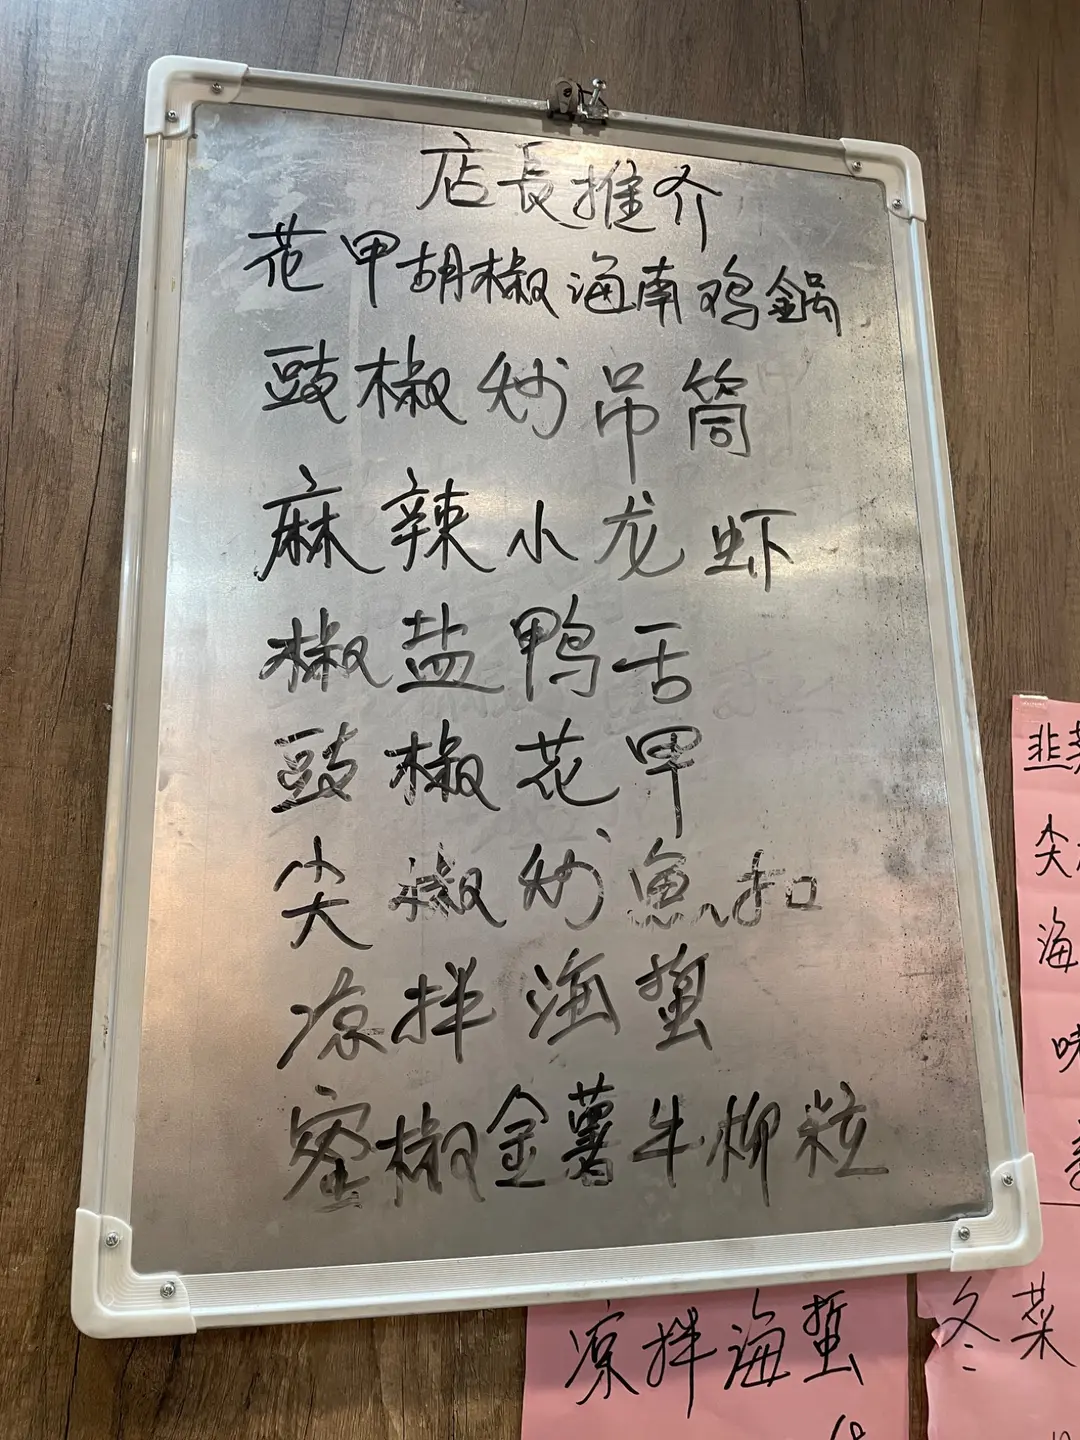 店長推介
花甲胡椒海南鸡鍋
豉椒炒吊筒
麻辣小龙虾
椒盐鸭舌
豉椒花甲
尖椒炒魚扣
凉拌海蜇
蜜椒金薯牛柳粒
韭菜
尖
海
味
凉拌海蜇
冬菜